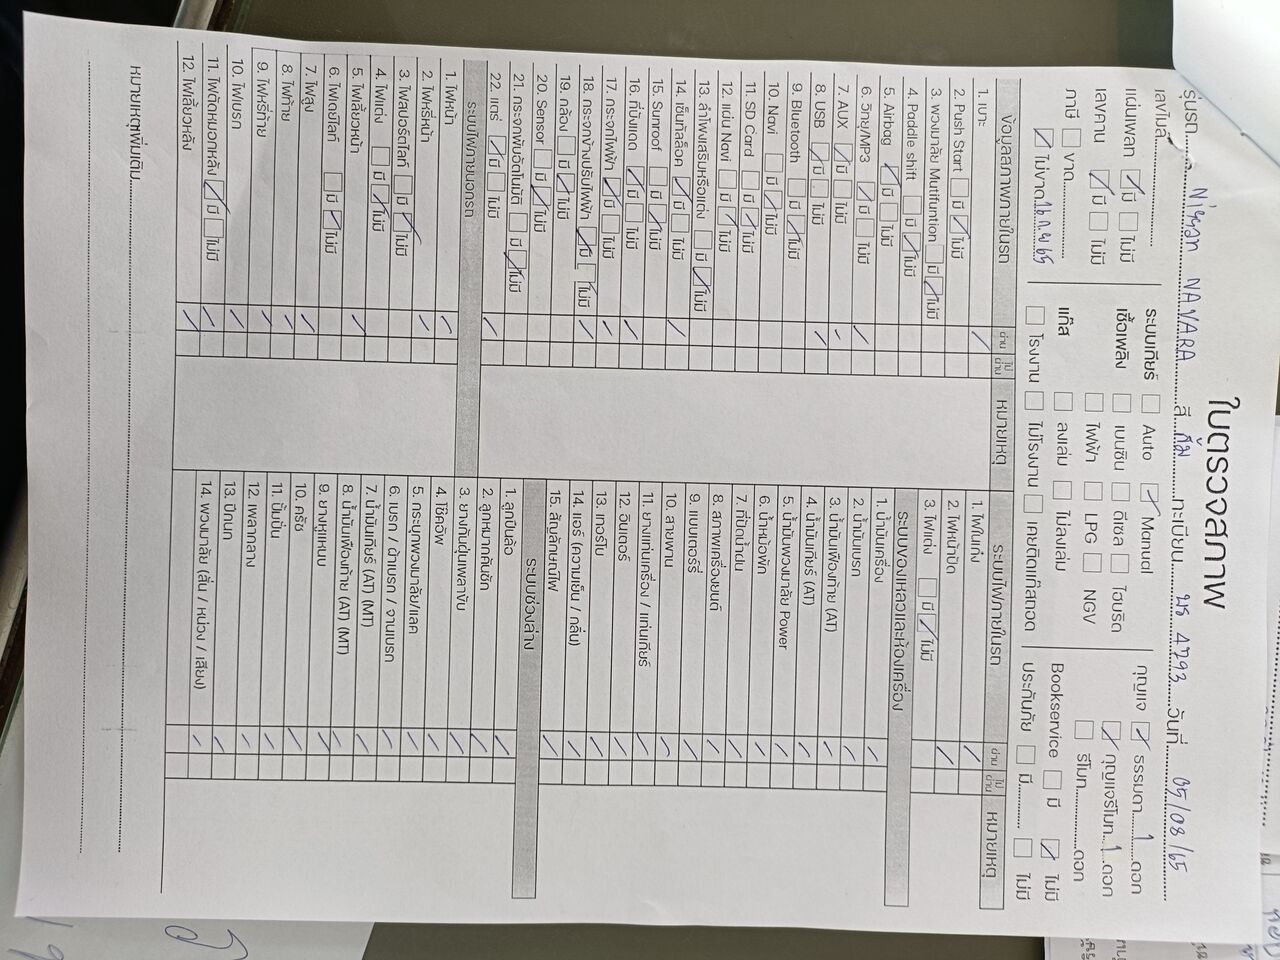 ใบตรวจสภาพ
รุ่นรถ Nissan NAVARA สี ทะเบียน 4293 วันที่ 05/08/65
เลขไมล์
ระบบเกียร์ Auto Manual
กุญแจ ธรรมดา 1 ดอก
แผ่นเพลท มี ไม่มี
เชื้อเพลิง เบนซิน ดีเซล ไฮบริด
กุญแจรีโมท 1 ดอก
เลขคาน มี ไม่มี
ไฟฟ้า LPG NGV
รีโมท ดอก
ภาษี ขาด
แก๊ส ลงเล่ม ไม่ลงเล่ม
Bookservice มี ไม่มี
ไม่ขาด 65
โรงงาน ไม่โรงงาน เคยติดแก๊สถอด
ประกันภัย มี ไม่มี
ข้อมูลสภาพภายในรถ ผ่าน ไม่ผ่าน หมายเหตุ
1. เบาะ
2. Push Start มี ไม่มี
3. พวงมาลัย Mutifuntion มี ไม่มี
4. Paddle shift มี ไม่มี
5. Airbag มี ไม่มี
6. วิทยุ/MP3 มี ไม่มี
7. AUX มี ไม่มี
8. USB มี ไม่มี
9. Bluetooth มี ไม่มี
10. Navi มี ไม่มี
11. SD Card มี ไม่มี
12. แผ่น Navi มี ไม่มี
13. ลำโพงเสริมหรือแต่ง มี ไม่มี
14. เซ็นทัลล็อค มี ไม่มี
15. Sunroof มี ไม่มี
16. ที่บังแดด มี ไม่มี
17. กระจกไฟฟ้า มี ไม่มี
18. กระจกข้างปรับไฟฟ้า มี ไม่มี
19. กล้อง มี ไม่มี
20. Sensor มี ไม่มี
21. กระจกพับอัตโนมัติ มี ไม่มี
22. แตร มี ไม่มี
ระบบไฟภายนอกรถ
1. ไฟหน้า
2. ไฟหรี่หน้า
3. ไฟสปอร์ตไลท์ มี ไม่มี
4. ไฟแต่ง มี ไม่มี
5. ไฟเลี้ยวหน้า
6. ไฟเดย์ไลท์ มี ไม่มี
7. ไฟสูง
8. ไฟท้าย
9. ไฟหรี่ท้าย
10. ไฟเบรก
11. ไฟตัดหมอกหลัง มี ไม่มี
12. ไฟเลี้ยวหลัง
ระบบไฟภายในรถ ผ่าน ไม่ผ่าน หมายเหตุ
1. ไฟในเก๋ง
2. ไฟหน้าปัด
3. ไฟแต่ง มี ไม่มี
ระบบของเหลวและห้องเครื่อง
1. น้ำมันเครื่อง
2. น้ำมันเบรก
3. น้ำมันเฟืองท้าย (AT)
4. น้ำมันเกียร์ (AT)
5. น้ำมันพวงมาลัย Power
6. น้ำหม้อพัก
7. ที่ปัดน้ำฝน
8. สภาพเครื่องยนต์
9. แบตเตอร์รี่
10. สายพาน
11. ยางแท่นเครื่อง / แท่นเกียร์
12. อินเตอร์
13. เทอร์โบ
14. แอร์ (ความเย็น / กลิ่น)
15. สัญลักษณ์ไฟ
ระบบช่วงล่าง
1. ลูกปืนล้อ
2. ลูกหมากคันชัก
3. ยางกันฝุ่นเพลาขับ
4. โช๊คอัพ
5. กระปุกพวงมาลัย/แลค
6. เบรก / ผ้าเบรก / จานเบรก
7. น้ำมันเกียร์ (AT) (MT)
8. น้ำมันเฟืองท้าย (AT) (MT)
9. ยางหูแหนบ
10. ครัช
11. ปั๊มปั่น
12. เพลากลาง
13. ปีกนก
14. พวงมาลัย (ลื่น / หน่วง / เสียง)
หมายเหตุเพิ่มเติม